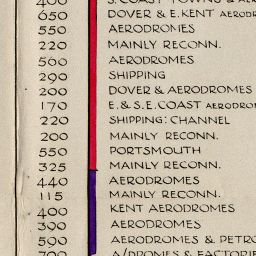 400 S. COAST TOWNS &
650 DOVER & E. KENT AERODR
550 AERODROMES
220 MAINLY RECONN.
560 AERODROMES
290 SHIPPING
200 DOVER & AERODROMES
170 E. & S.E. COAST AERODRO
220 SHIPPING: CHANNEL
200 MAINLY RECONN.
550 PORTSMOUTH
325 MAINLY RECONN.
440 AERODROMES
115 MAINLY RECONN.
400 KENT AERODROMES
300 AERODROMES
590 AERODROMES & PETRO
700 A/DROMES & FACTORIE